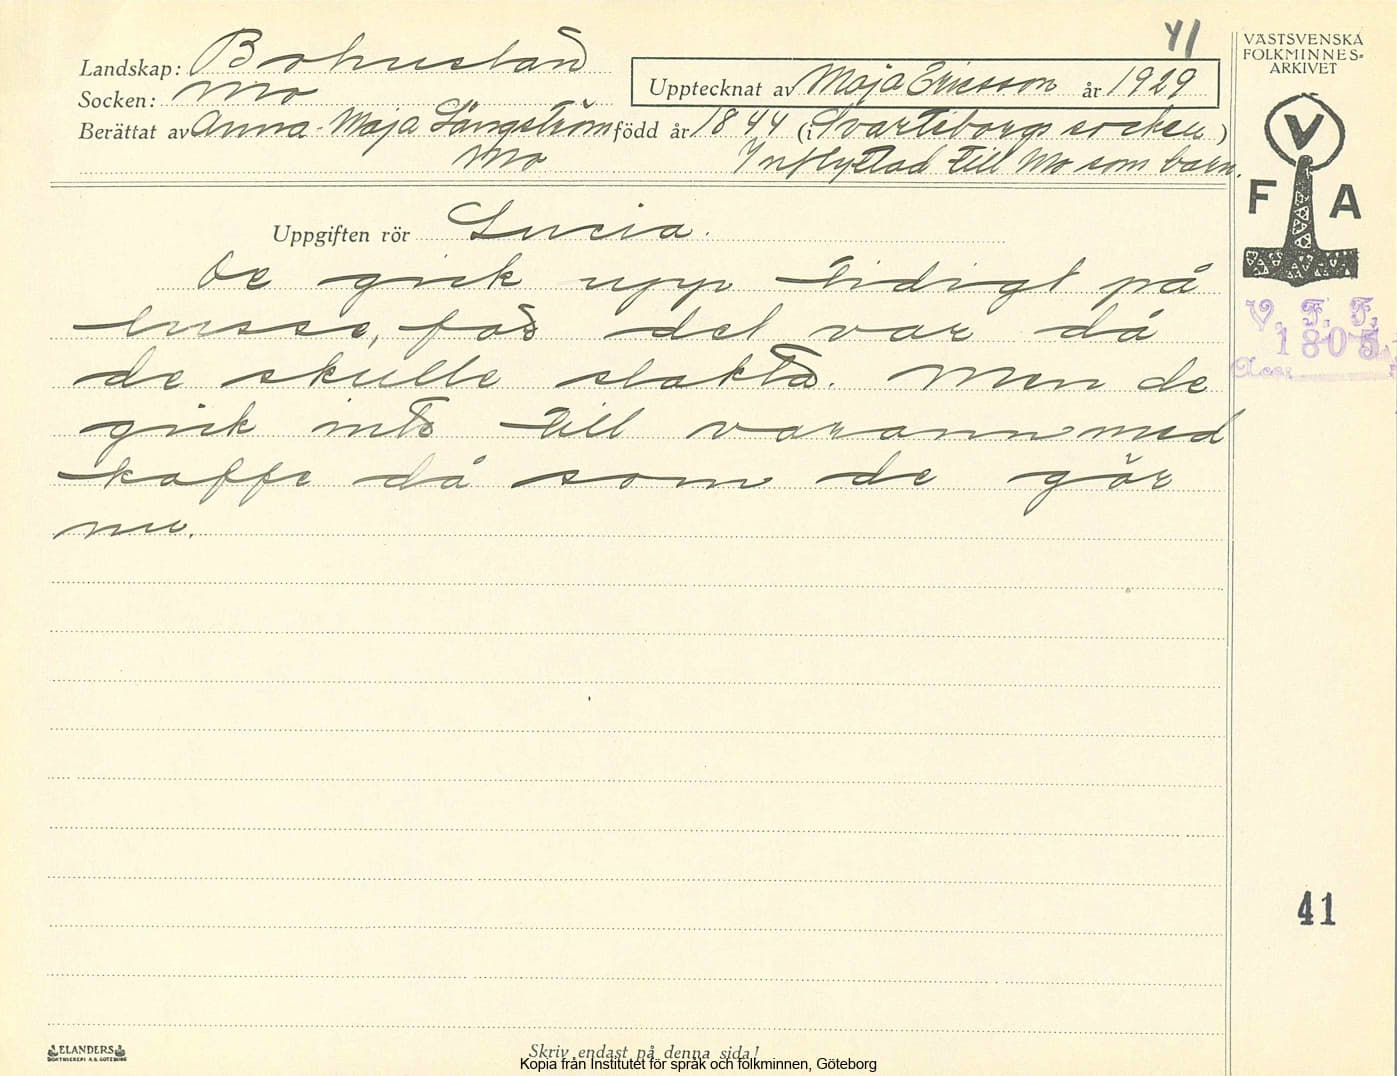 41
Landskap: Bohuslän
Socken: Mo
Upptecknat av Maja Ericsson år 1929
Berättat av Anna-Maja Långström född år 1844 (i Svarteborgs socken)
Mo Inflyttad till Mo som barn.
Uppgiften rör Lucia.
De gick upp tidigt på
lusse, för det var då
de skulle slakta. Men de
gick inte till varann med
kaffe då som de gör
nu.
VÄSTSVENSKA
FOLKMINNES-
ARKIVET
V
F A
V. F. F.
1805
Acc:
41
ELANDERS
BOKTRYCKERI A.B. GÖTEBORG
Skriv endast på denna sida!
Kopia från Institutet för språk och folkminnen, Göteborg